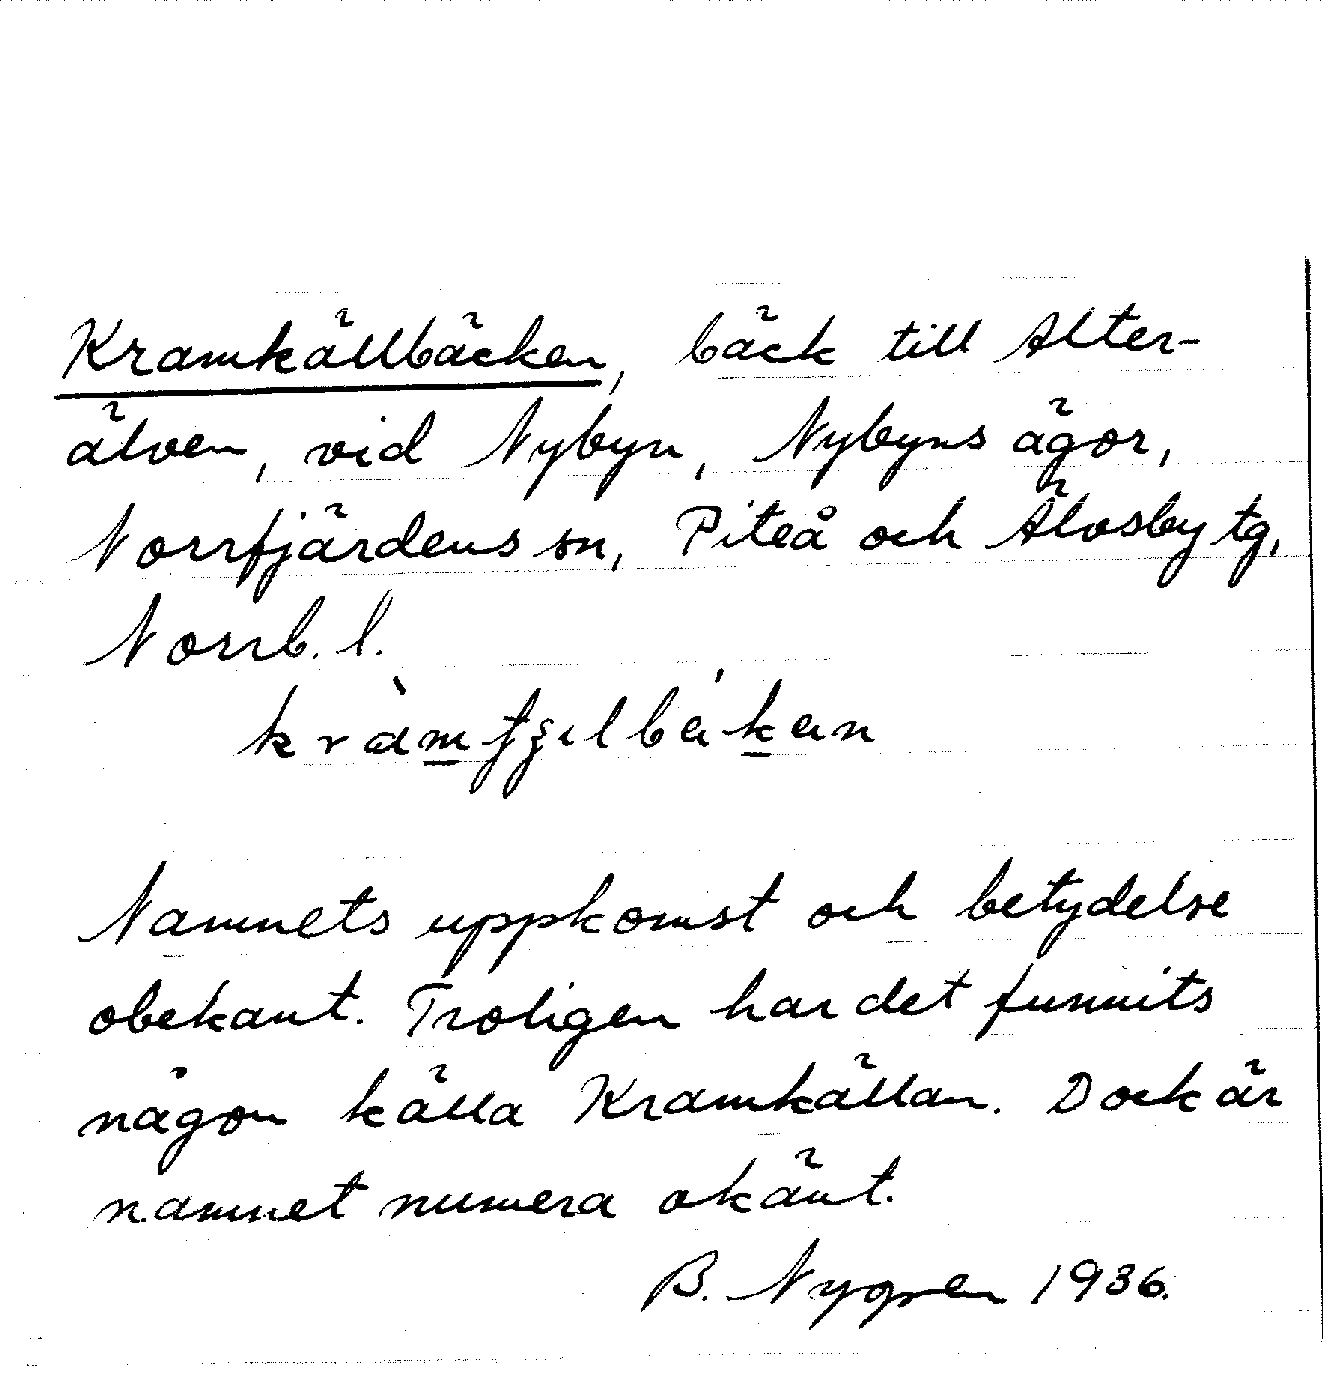 Kramkällbäcken, bäck till Alter-
älven, vid Nybyn, Nybyns ägor,
Norrfjärdens sn, Piteå och Älvsby tg,
Norrb. l.
Namnets uppkomst och betydelse
obekant. Troligen har det funnits
någon källa Kramkällan. Dock är
namnet numera okänt.
B. Nygren 1936.